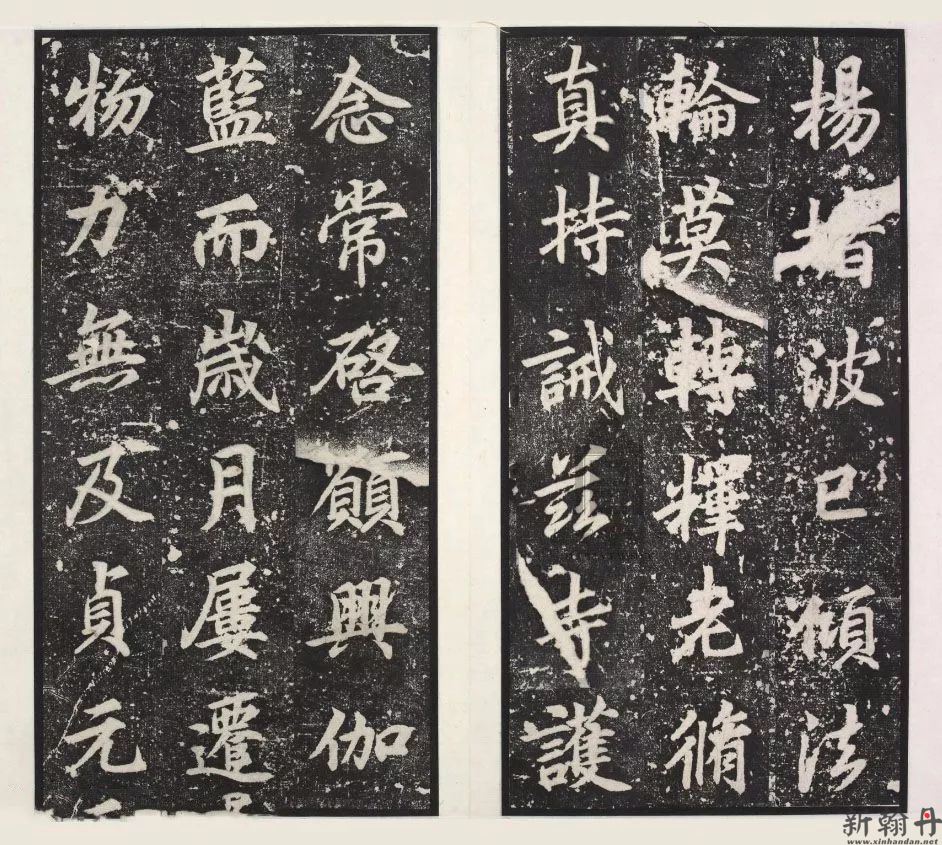 楊堵波已傾法
輪莫轉禪老脩
真持誡茲寺護
念常啓願興伽
藍而歲月屢遷
物力無及貞元
新翰丹
www.xinhandan.net